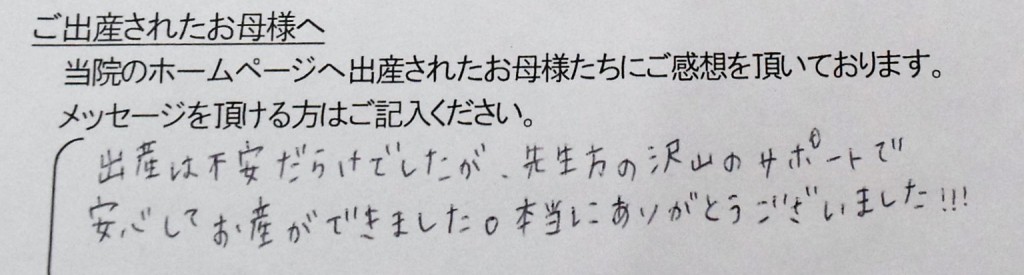 ご出産されたお母様へ
当院のホームページへ出産されたお母様たちにご感想を頂いております。
メッセージを頂ける方はご記入ください。
出産は不安だらけでしたが、先生方の沢山のサポートで
安心してお産ができました。本当にありがとうございました!!!